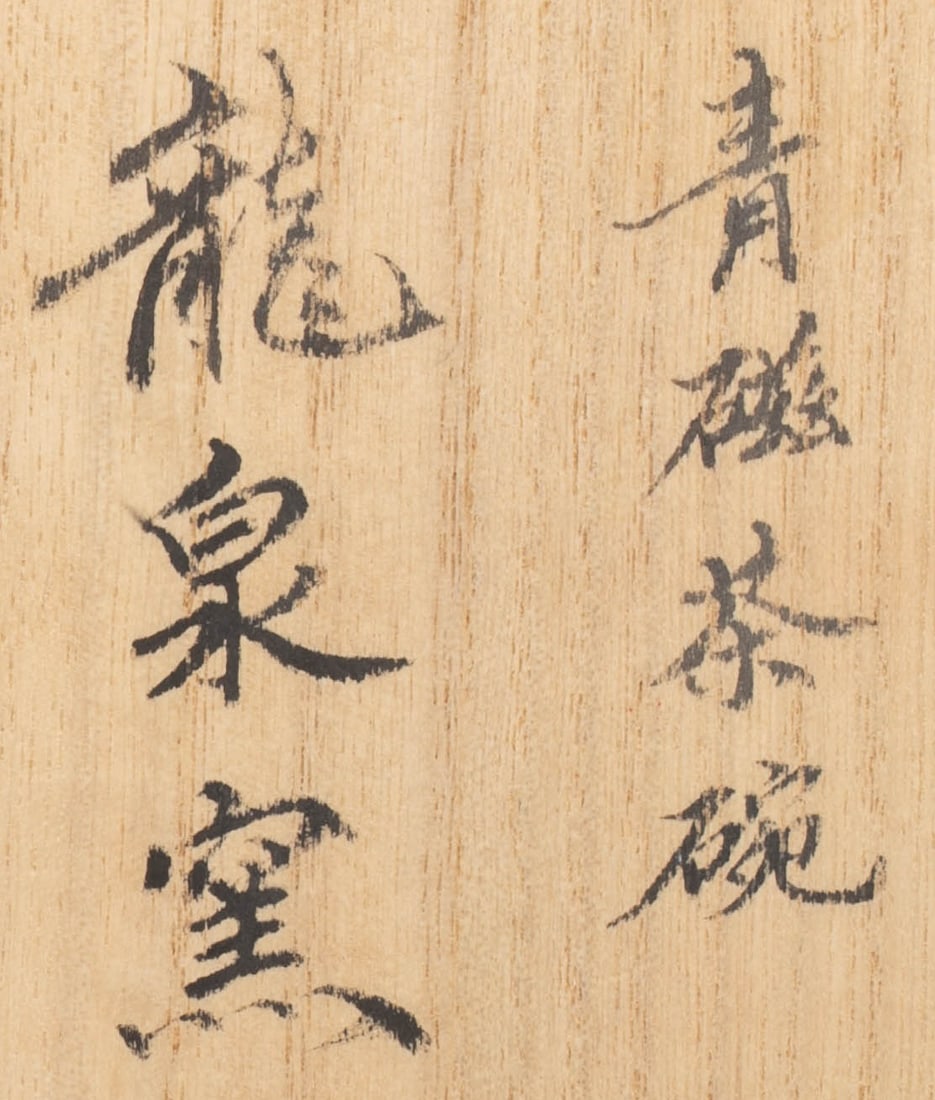 青磁茶碗
龍泉窯